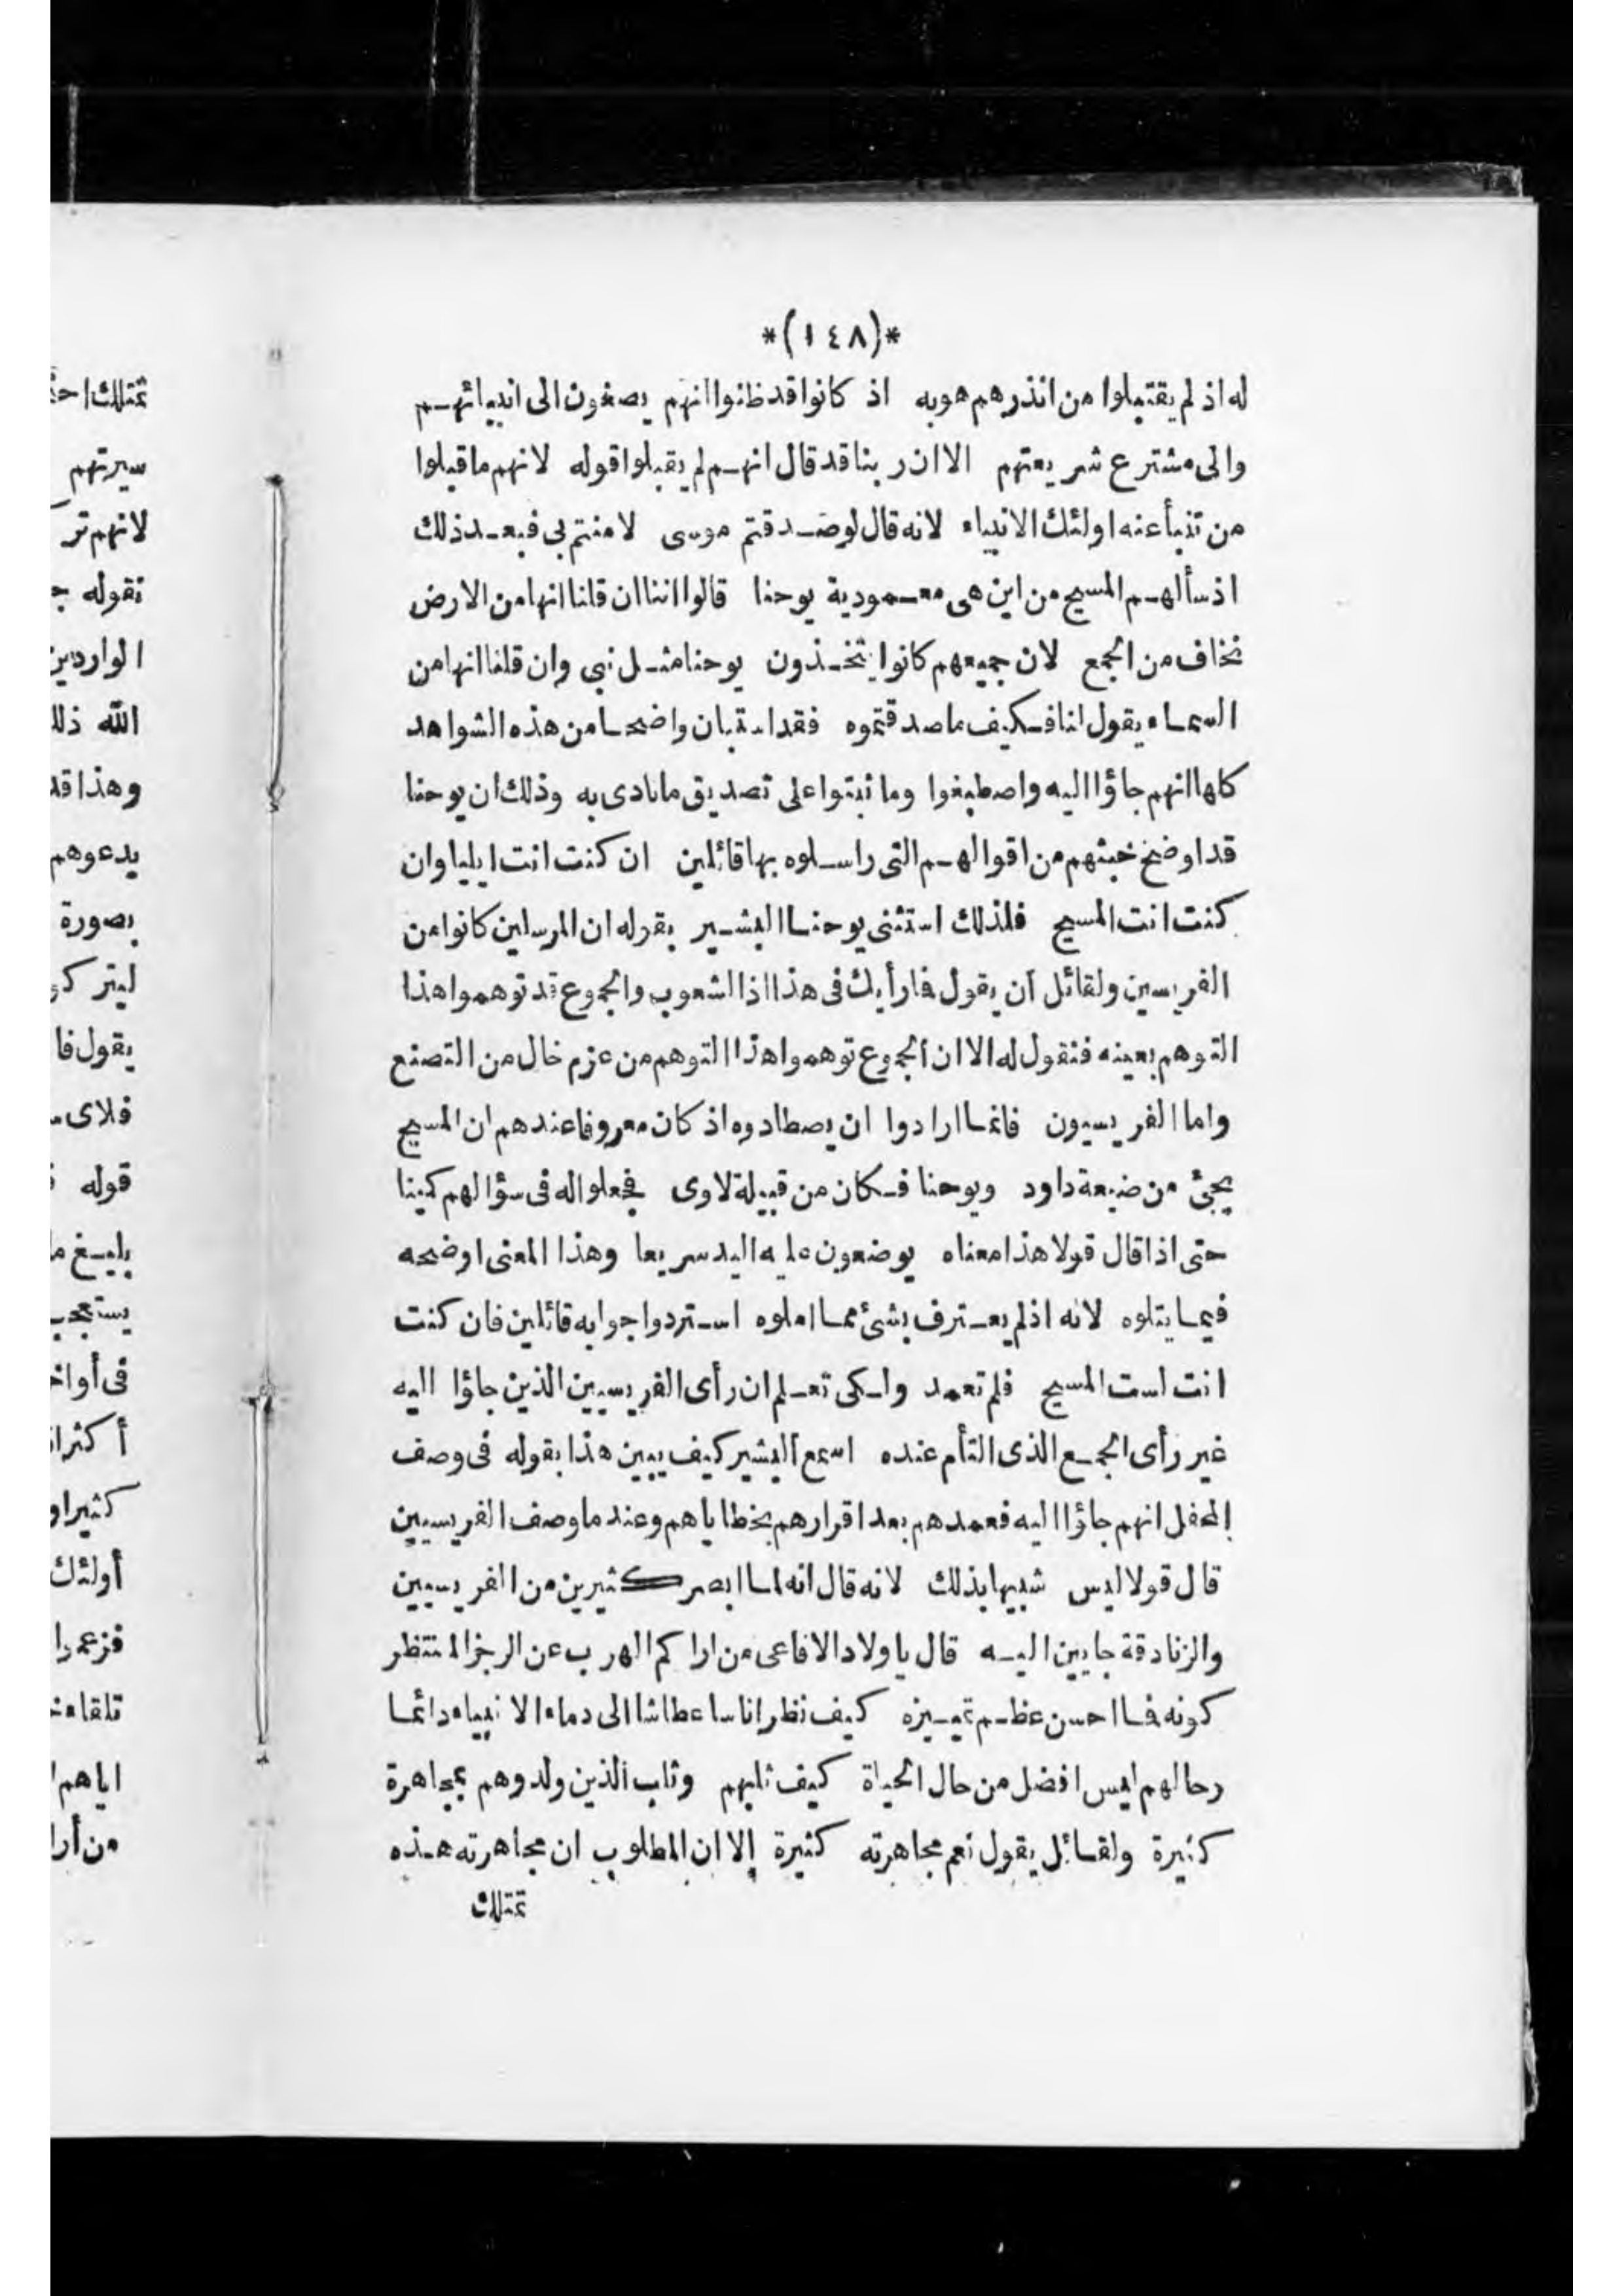 *(١٤٨)*
له اذ لم يقتبلوا من انذرهم هوبه اذ كانوا قد ظنوا انهم يصغون الى انبيائهم
والى مشترع شريعتهم الا ان ربنا قد قال انهم لم يقبلوا قوله لانهم ما قبلوا
من تنبأ عنه اولئك الانبياء لانه قال لو صدقتم موسى لامنتم بى فبعد ذلك
اذ سألهم المسيح من اين هى معمودية يوحنا قالوا اننا ان قلنا انها من الارض
نخاف من الجمع لان جميعهم كانوا يتخذون يوحنا مثل نبى وان قلنا انها من
السماء يقول لنا فكيف ما صدقتموه فقد استبان واضحا من هذه الشواهد
كلها انهم جاؤا اليه واصطبغوا وما ثبتوا على تصديق ما نادى به وذلك ان يوحنا
قد اوضح خبثهم من اقوالهم التى راسلوه بها قائلين ان كنت انت ايليا وان
كنت انت المسيح فلذلك استثنى يوحنا البشير بقوله ان المرسلين كانوا من
الفريسين ولقائل ان يقول فما رأيك فى هذا اذا الشعوب والجموع قد توهموا هذا
التوهم بعينه فنقول له الا ان الجموع توهموا هذا التوهم من عزم خال من التصنع
واما الفريسيون فانما ارادوا ان يصطادوه اذ كان معروفا عندهم ان المسيح
يجئ من ضيعة داود ويوحنا فكان من قبيلة لاوى فجعلوا له فى سؤالهم كمينا
حتى اذا قال قولا هذا معناه يوضعون عليه اليد سريعا وهذا المعنى اوضحه
فيما يتلوه لانه اذ لم يعترف بشئ مما املوه استردوا جوابه قائلين فان كنت
انت لست المسيح فلم تعمد ولكى تعلم ان رأى الفريسيين الذين جاؤا اليه
غير رأى الجمع الذى التأم عنده اسمع البشير كيف يبين هذا بقوله فى وصف
المحفل انهم جاؤا اليه فعمدهم بعد اقرارهم بخطاياهم وعند ما وصف الفريسيين
قال قولا ليس شبيها بذلك لانه قال انه لما ابصر كثيرين من الفريسيين
والزنادقة جايين اليه قال يا ولاد الافاعى من اراكم الهرب عن الرجز المنتظر
كونه فما احسن عظم تميزه كيف نظر اناسا عطاشا الى دماء الانبياء دائما
رحالهم ليس افضل من حال الحياة كيف ثلبهم وثاب الذين ولدوهم بمجاهرة
كثيرة ولقائل يقول نعم مجاهرته كثيرة الا ان المطلوب ان مجاهرته هذه
تمتلك
تمتلك احتى
سيرتهم
لانهم تر
نقوله
الواردين
الله ذلك
وهذا قد
يدعوهم
بصورة
ليتر
يقول فا
فلاى
قوله
بليغ
يستعجب
فى أواخ
أكثر
كثيرا
أولئك
فزعموا
تلقاء
اياهم
من أرا